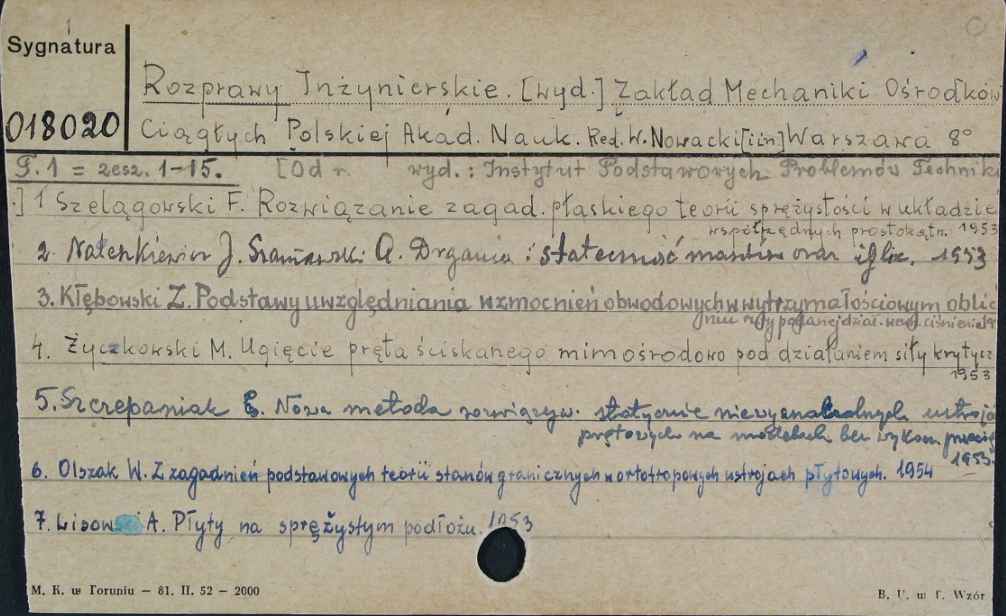 Sygnatura
Rozprawy Inżynierskie. [wyd.] Zakład Mechaniki Ośrodków
018020
Ciągłych Polskiej Akad. Nauk. Red. W. Nowacki [i in] Warszawa 8°
T. 1 = zesz. 1-15. [Od r. wyd.: Instytut Podstawowych Problemów Techniki
.] 1 Szelągowski F. Rozwiązanie zagad. płaskiego teorii sprężystości w układzie
współrzędnych prostokątn. 1953
2. Naleszkiewicz J. A. Drgania i stateczność masztów oraz iglic. 1953
3. Kłębowski Z. Podstawy uwzględniania wzmocnień obwodowych w wytrzymałościowym oblic
4. Życzkowski M. Ugięcie pręta ściskanego mimośrodowo pod działaniem siły krytycz
1953
5. Szczepaniak E. Nowa metoda rozwiązyw. statycznie niewyznaczalnych ustrojó
prętowych na modelach bez
1953.
6. Olszak W. Z zagadnień podstawowych teorii stanów granicznych w ortotropowych ustrojach płytowych. 1954
7. Lisowski A. Płyty na sprężystym podłożu. 1953
M. K. w Toruniu — 81. II. 52 — 2000
B. U. w T. Wzór